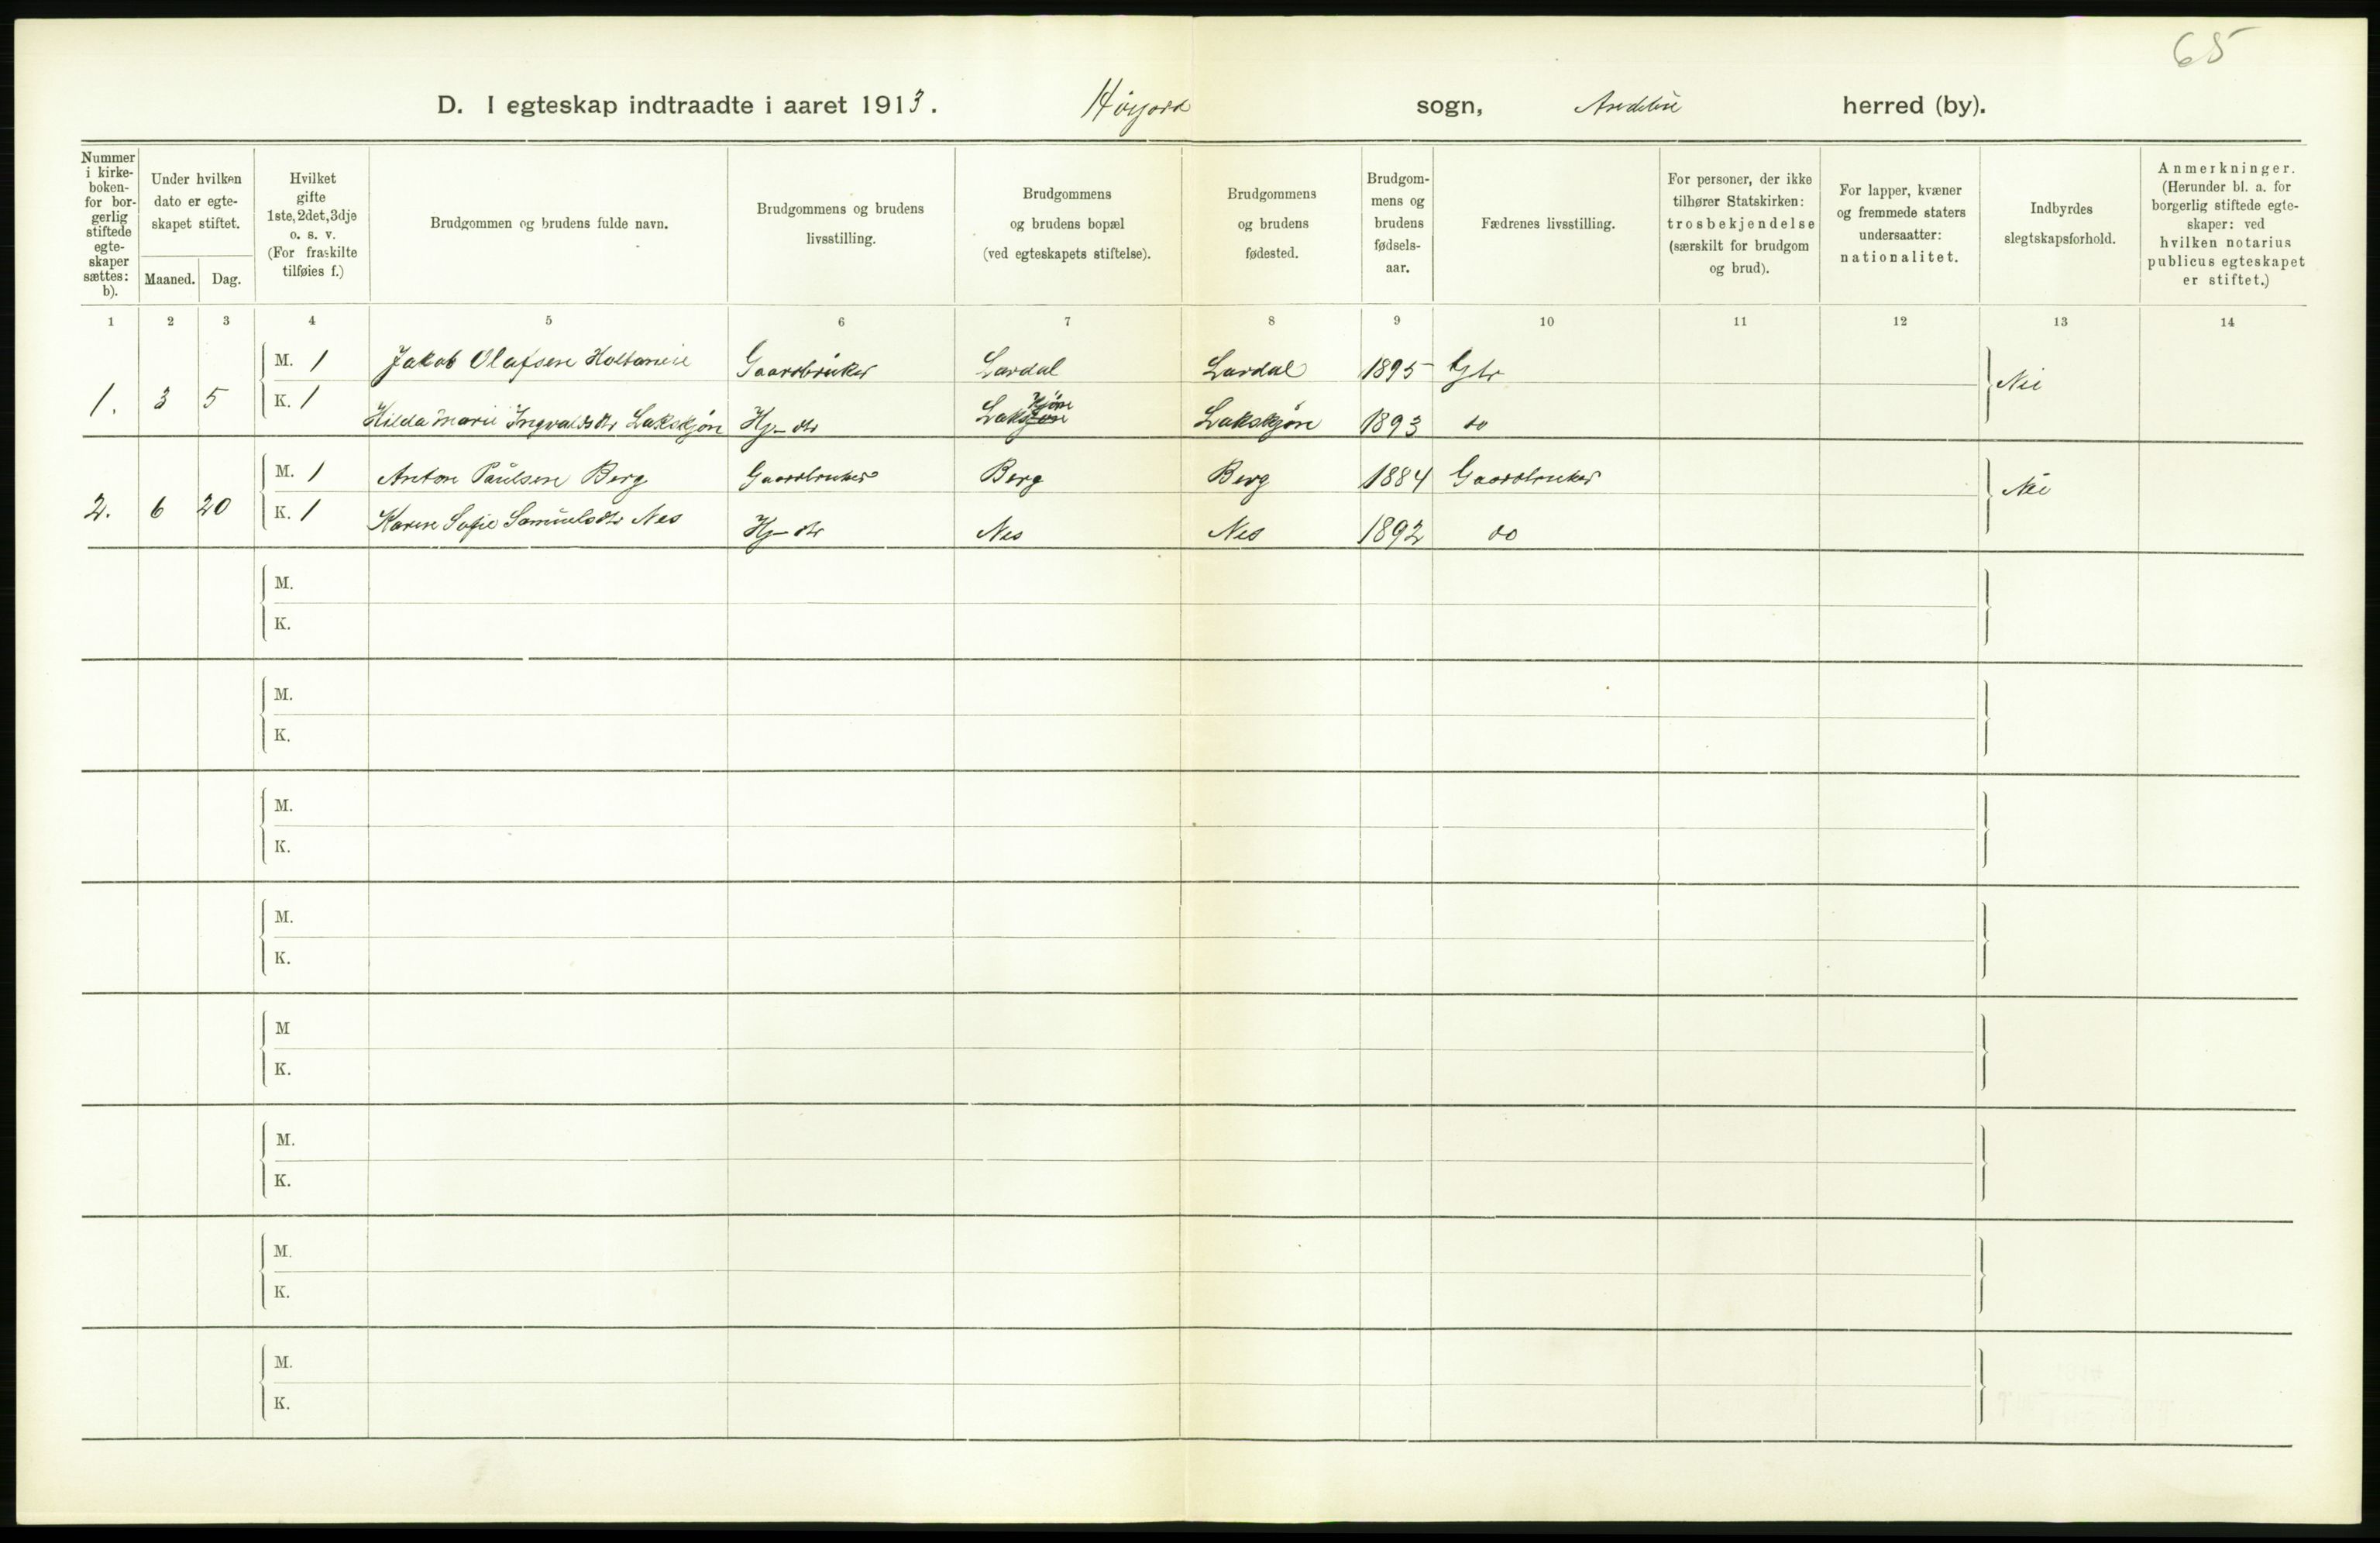 65
D. I egteskap indtraadte i aaret 1913. Høijord sogn, Andebu herred (by).
Nummer i kirke- boken- for bor- gerlig stiftede egte- skaper sættes: b).
Under hvilken dato er egte- skapet stiftet.
Maaned. Dag.
Hvilket gifte 1ste, 2det, 3dje o. s. v. (For fraskilte tilføies f.)
Brudgommen og brudens fulde navn.
Brudgommens og brudens livsstilling.
Brudgommens og brudens bopæl (ved egteskapets stiftelse).
Brudgommens og brudens fødested.
Brudgom- mens og brudens fødsels- aar.
Fædrenes livsstilling.
For personer, der ikke tilhører Statskirken: trosbekjendelse (særskilt for brudgom og brud).
For lapper, kvæner og fremmede staters undersaatter: nationalitet.
Indbyrdes slegtskapsforhold.
Anmerkninger. (Herunder bl. a. for borgerlig stiftede egte- skaper: ved hvilken notarius publicus egteskapet er stiftet.)
1 2 3 4 5 6 7 8 9 10 11 12 13 14
M. 1 Jakob Olafsen Gaardbruker Lardal Lardal 1895 Gbr
1. 3 5 Nei
K. 1 Hilda Marie Ingvaldsdtr Lakskjøn Hj-dtr Lakskjøn Lakskjøn 1893 do
M. 1 Anton Paulsen Berg Gaardbruker Berg Berg 1884 Gaardbruker
2. 6 20 Nei
K. 1 Karen Sofie Samuelsdtr Nes Hj-dtr Nes Nes 1892 do
M.
K.
M.
K.
M.
K.
M.
K.
M
K.
M.
K.
M.
K.
M.
K.